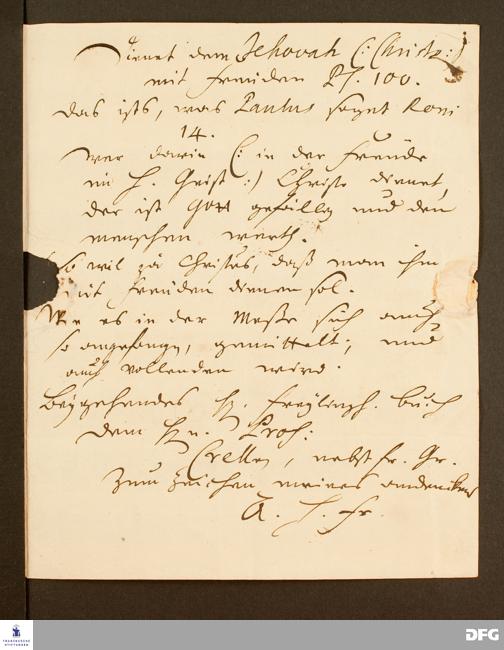 Dienet dem Jehovah (: Christo :)
mit freuden Ps. 100.
das ists, was Paulus saget Rom
14.
wer darin (: in der freude
im H. Geist :) Christo dienet,
der ist Gott gefällig und den
menschen werth.
so wil ja Christus, daß man ihm
mit freuden dienen sol.
Wie es in der Messe sich auch
so angefangen, gemittelt, und
auch vollenden wird.
beygehendes H. Freylingh. buch
dem Hn. Prof:
Crellen, nebst fr. Gr.
zum zeichen meines andenkens
A. H. Fr.
FRANCKESCHE STIFTUNGEN
DFG